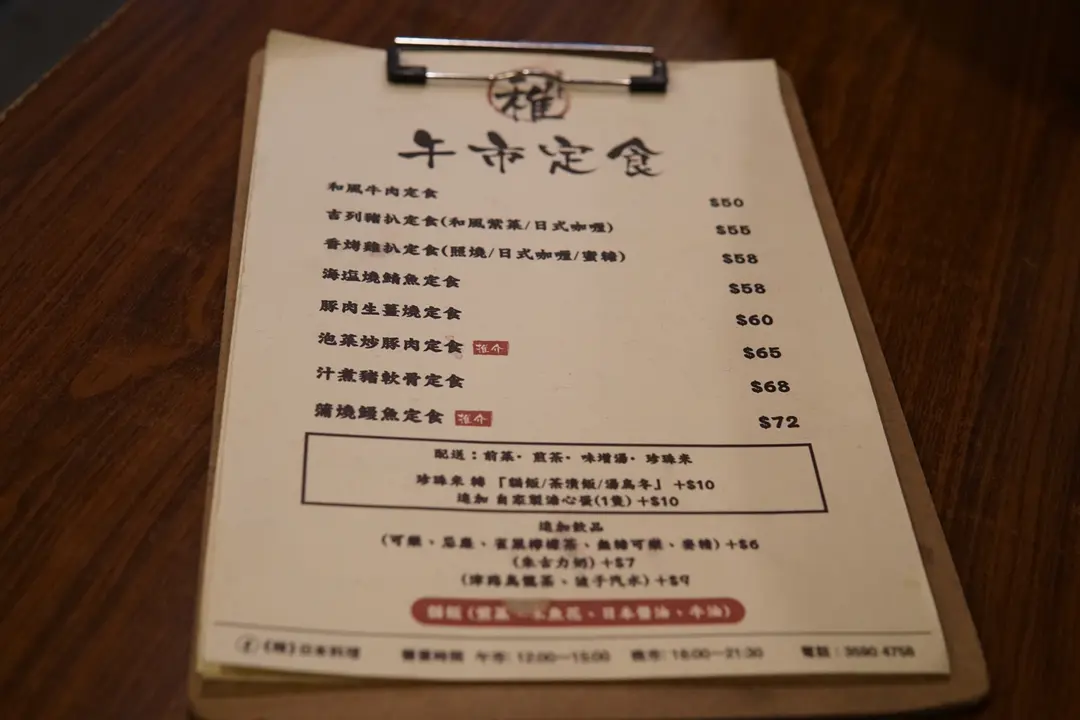 稚
午市定食
和風牛肉定食 $50
吉列豬扒定食(和風紫菜/日式咖喱) $55
香烤雞扒定食(照燒/日式咖喱/蜜糖) $58
海塩燒鯖魚定食 $58
豚肉生薑燒定食 $60
泡菜炒豚肉定食 推介 $65
汁煮豬軟骨定食 $68
蒲燒鰻魚定食 推介 $72
配送：前菜・煎茶・味增湯・珍珠米
珍珠米 轉 「貓飯/茶漬飯/湯烏冬」 +$10
追加 自家製溏心蛋(1隻) +$10
追加飲品
(可樂、忌廉、雀巢檸檬茶、無糖可樂、麥精) +$6
(朱古力奶) +$7
(津路烏龍茶、波子汽水) +$9
貓飯 (紫菜、木魚花、日本醬油、牛油)
日本料理 營業時間 午市: 12:00—15:00 晚市: 18:00—21:30 電話: 3590 4758